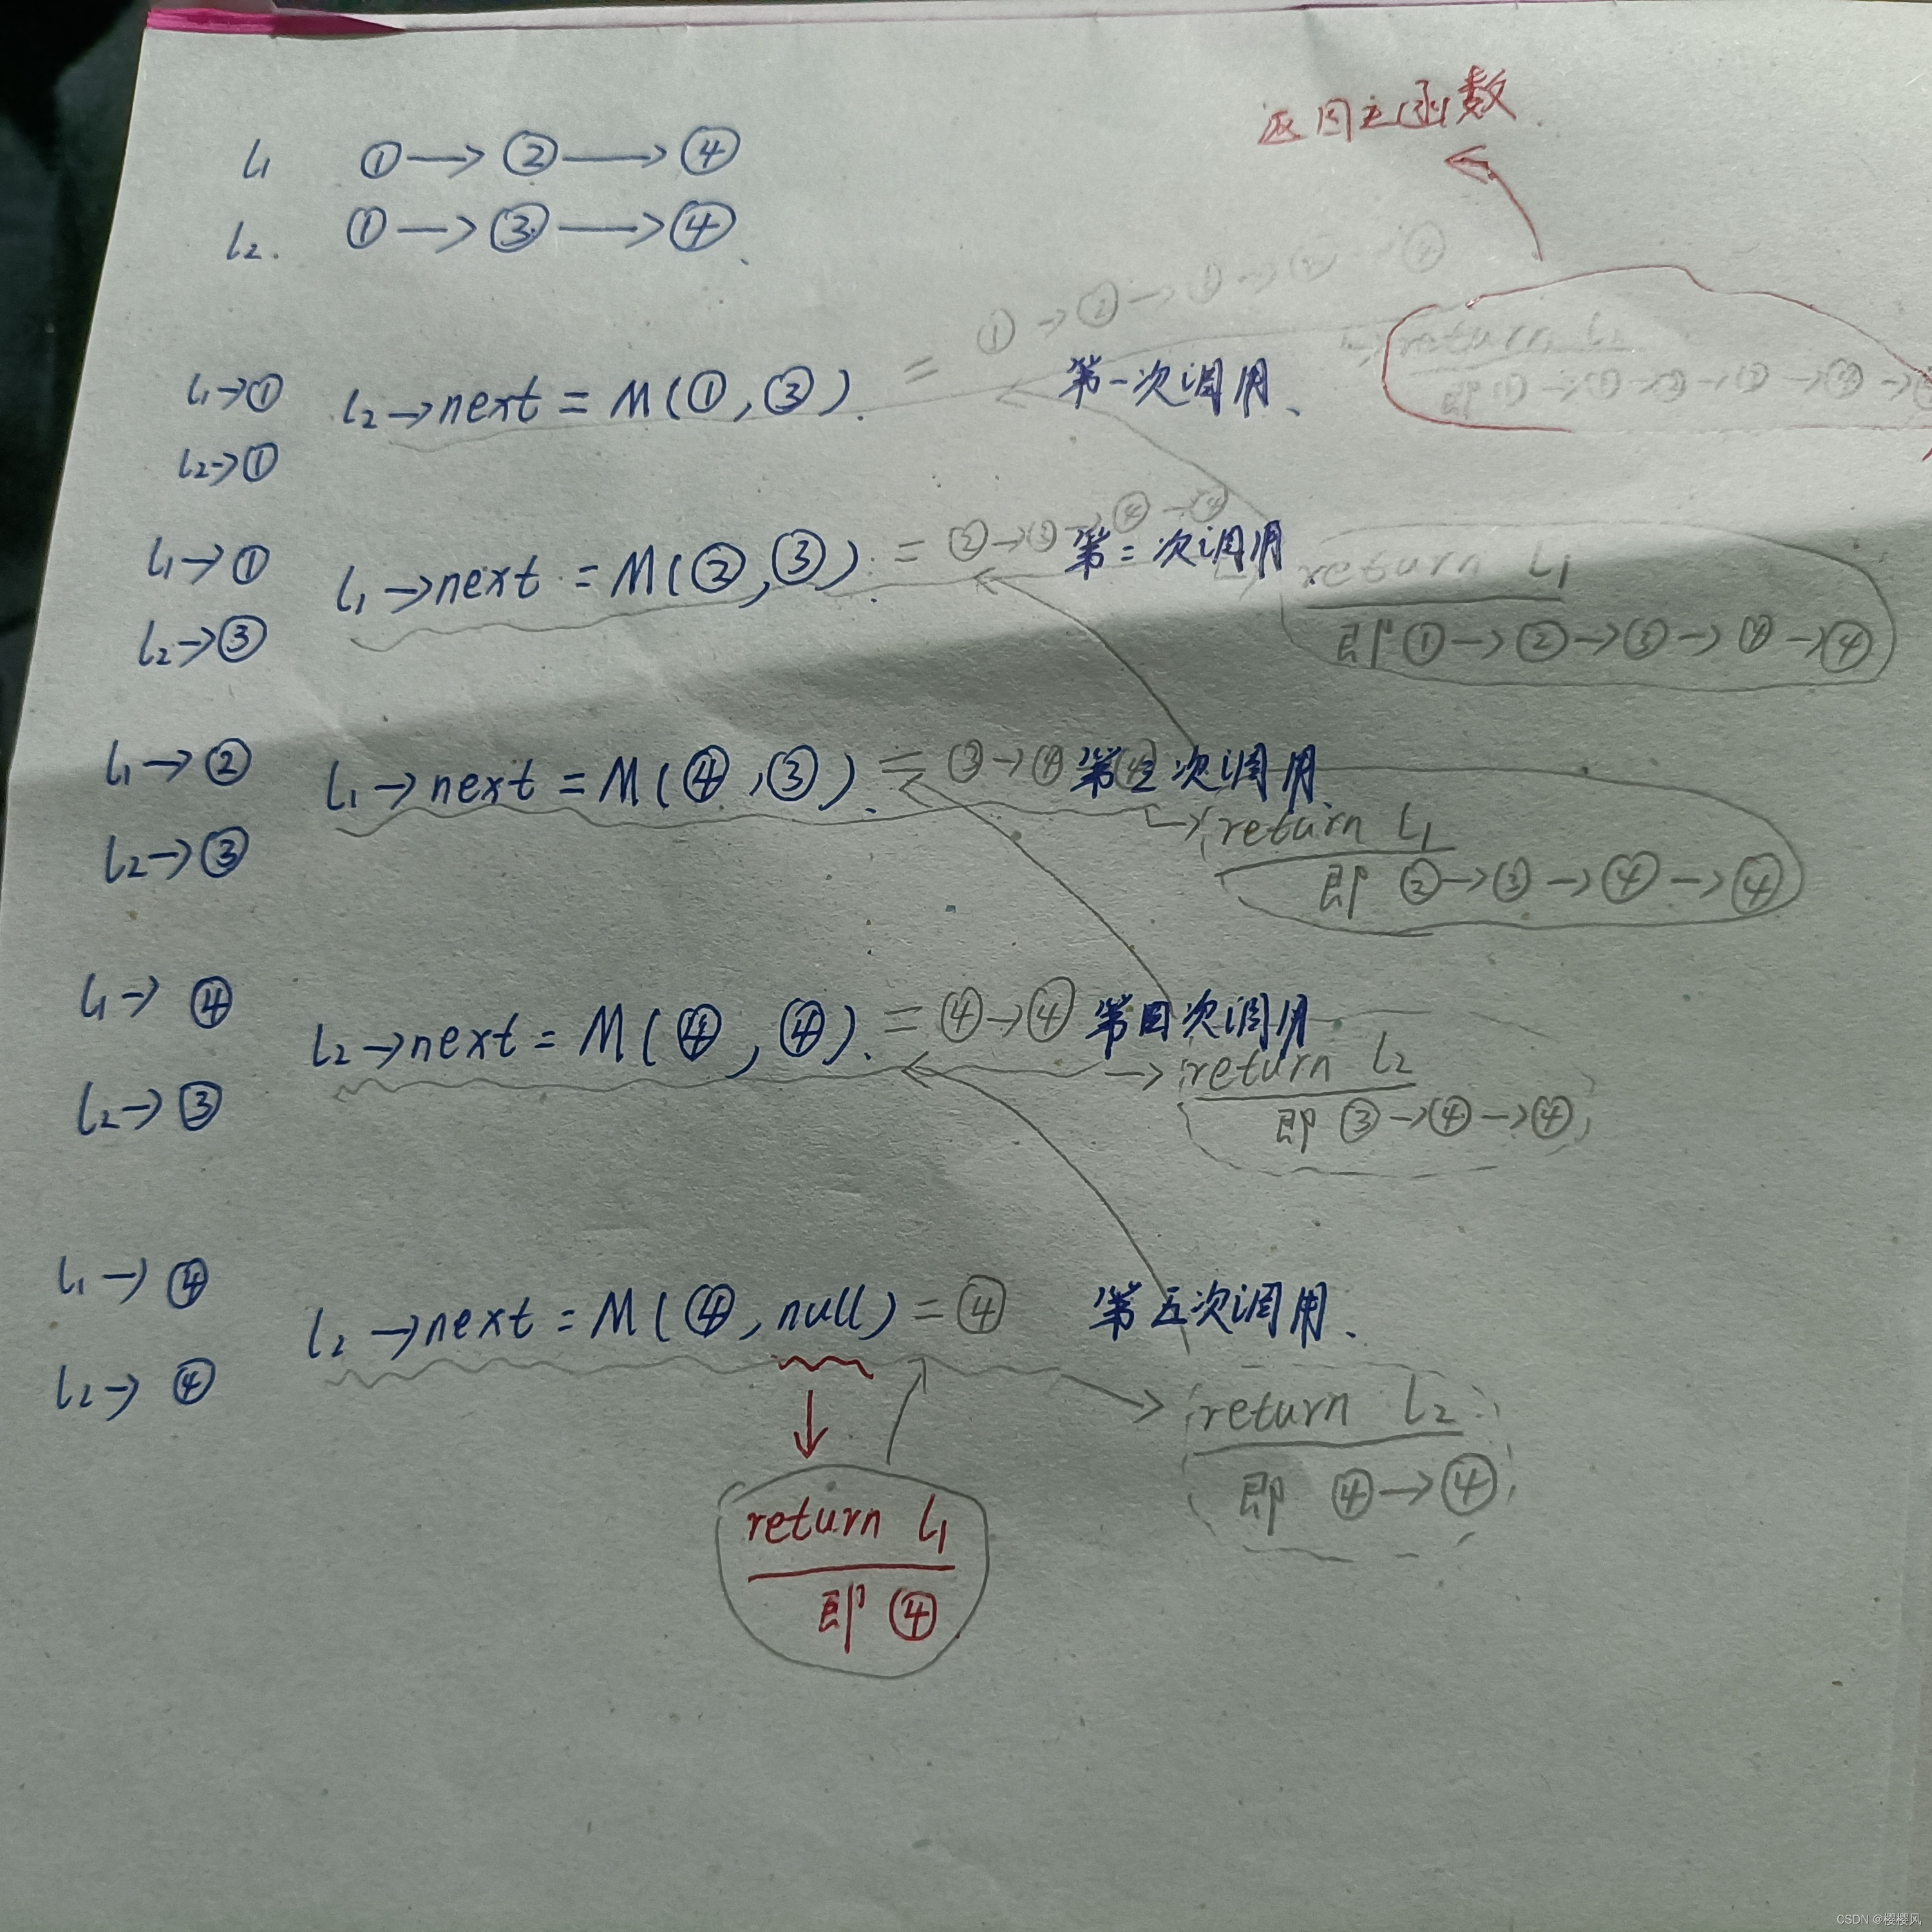 返回主函数
l₁ ①→②→④
l₂. ①→③→④
①→②→③→④→④
l₁→① l₂→next=M(①,③). = 第一次调用、 →return l₂
l₂→① 即①→①→②→③→④→
l₁→① l₁→next=M(②,③). =②→③→④→④ 第二次调用 →return l₁
l₂→③ 即①→②→③→④→④
l₁→② l₁→next=M(④,③). =③→④→④ 第三次调用、
l₂→③ →return l₁
即②→③→④→④
l₁→④ l₂→next=M(④,④). =④→④ 第四次调用
→return l₂
l₂→③ 即③→④→④
l₁→④ l₂→next=M(④,null)=④ 第五次调用、
l₂→④ return l₂
即④→④
return l₁
即④
CSDN @樱樱风